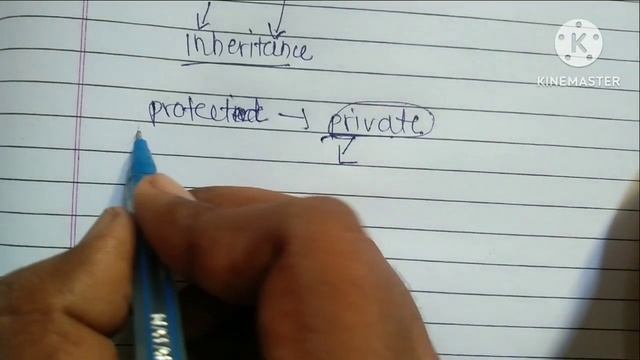 inheritance
protected → private
K
KINEMASTER